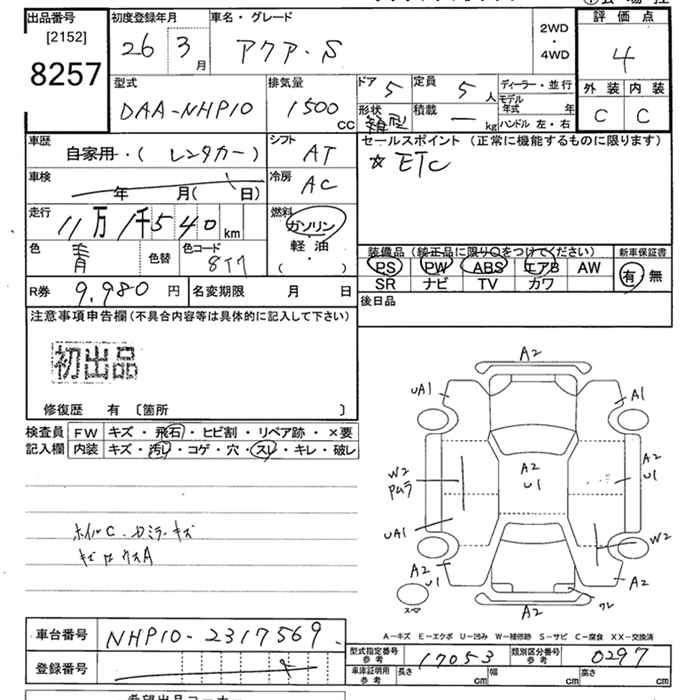 出品番号 初度登録年月 車名・グレード 評価点
[2152] 26 3月 アクア・S 2WD・4WD 4
8257
型式 排気量 ドア 5 定員 5人 ディーラー・並行 外装 内装
DAA-NHP10 1500cc 形状 箱型 積載 — kg モデル年式 年 C C
ハンドル 左・右
車歴 シフト セールスポイント (正常に機能するものに限ります)
自家用・( レンタカー ) AT ☆ETC
車検 年 月( 日) 冷房 AC
走行 11万1千540km 燃料 ガソリン
軽油
( ・ )
色 青 色替 色コード 8T7
装備品 (純正品に限り○をつけてください) 新車保証書
PS PW ABS エアB AW 有 無
SR ナビ TV カワ
R券 9,980円 名変期限 月 日 後日品
注意事項申告欄(不具合内容等は具体的に記入して下さい)
初出品
修復歴 有 〔箇所 〕
検査員 FW キズ・飛石・ヒビ割・リペア跡・×要
記入欄 内装 キズ・汚レ・コゲ・穴・スレ・キレ・破レ
A2
UA1 A1
A2
U1
W2 A2
U1
UA1 W2
A2
U1 A2
スペア ワレ
A2
ホイルC・カミラ・キズ
A-キズ E-エクボ U-凹み W-補修跡 S-サビ C-腐食 XX-交換済
車台番号 NHP10-2317569
登録番号
型式指定番号 参考 17053 類別区分番号 参考 0297
車庫証明用 参考 長さ cm 幅 cm 高さ cm
希望出品コーナー